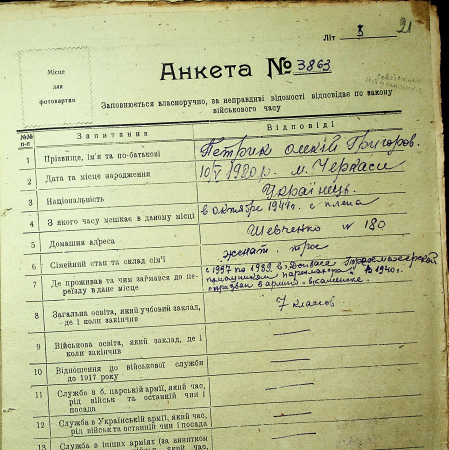 Літ 3 21
Місце для фотокартки
Анкета № 3863
Заповнюється власноручно, за неправдиві відомості відповідає по закону
військового часу
№№ п-п Запитання Відповіді
1 Прізвище, ім'я та по-батькові Петрик Григоров.
2 Дата та місце народження 10/V 1920р. м. Черкаси
3 Національність Українець.
4 З якого часу мешкає в даному місці в октябре 1941г. с плена
5 Домашня адреса Шевченко № 180
6 Сімейний стан та склад сім'ї женат. трое
7 Де проживав та чим займався до переїзду в дане місце с 1937 по 1939 в Донбасе
помошником в 1940г.
призван в армию
8 Загальна освіта, який учбовий заклад, де і коли закінчив 7 класов
9 Військова освіта, який заклад, де і коли закінчив
10 Відношення до військової служби до 1917 року
11 Служба в б. царській армії, який час, рід військ та останній чин і посада
12 Служба в Українській армії, який час, рід військ та останній чин і посада
13 Служба в інших арміях (за винятком